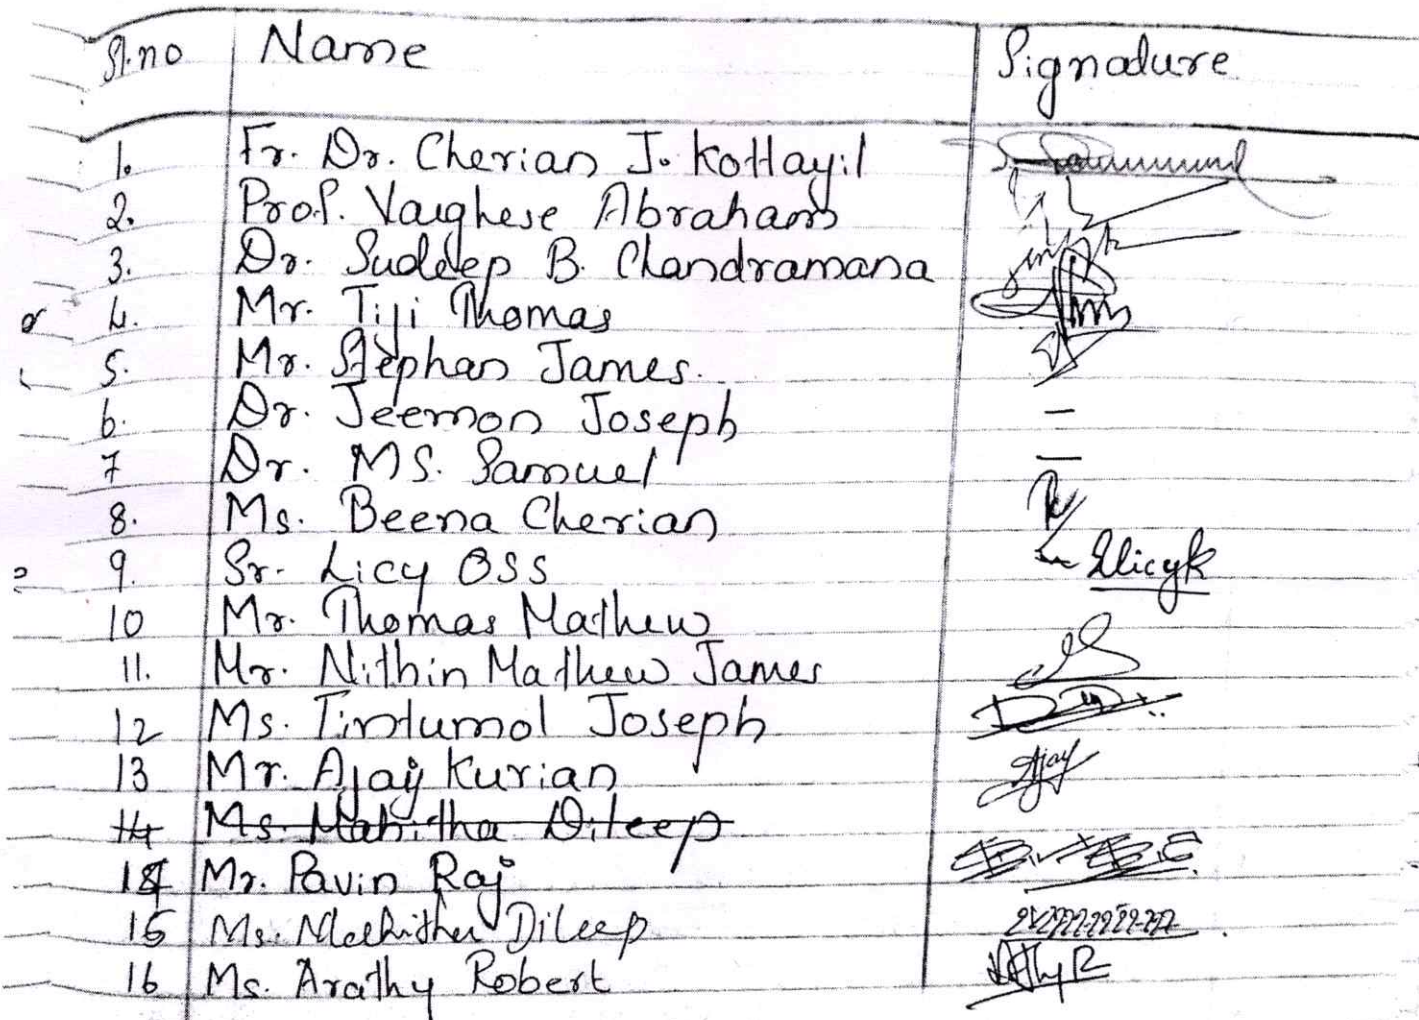 Sl.no Name Signature
1. Fr. Dr. Cherian J. Kottayil
2. Prof. Varghese Abraham
3. Dr. Sudeep B. Chandramana
4. Mr. Tiji Thomas
5. Mr. Stephan James.
6. Dr. Jeemon Joseph –
7 Dr. MS. Samuel –
8. Ms. Beena Cherian
9. Sr. Licy OSS
10 Mr. Thomas Mathew
11. Mr. Nithin Mathew James
12 Ms. Tintumol Joseph
13 Mr. Ajay Kurian Ajay
14 Ms. Mahitha Dileep
14 Mr. Pavin Raj
15 Ms. Mahitha Dileep
16 Ms. Arathy Robert